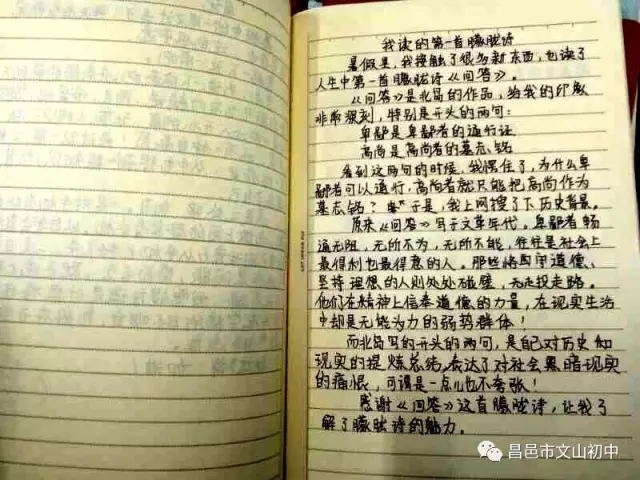 我读的第一首朦胧诗
暑假里,我接触了很多新东西,也读了
人生中第一首朦胧诗《回答》。
《回答》是北岛的作品,给我的印象
非常深刻,特别是开头的两句:
卑鄙是卑鄙者的通行证
高尚是高尚者的墓志铭
看到这两句的时候,我愣住了,为什么卑
鄙者可以通行,高尚者就只能把高尚作为
墓志铭?于是,我上网搜了下历史背景。
原来《回答》写于文革年代。卑鄙者畅
通无阻,无所不为,无所不能,往往是社会上
最得利也最得意的人。那些恪守道德、
坚持理想的人则处处碰壁,无走投走路。
他们在精神上信奉道德的力量,在现实生活
中却是无能为力的弱势群体!
而北岛写的开头的两句,是自己对历史和
现实的提炼总结,表达了对社会黑暗现实
的痛恨,可谓是一点儿也不夸张!
感谢《回答》这首朦胧诗,让我了
解了朦胧诗的魅力。
昌邑市文山初中